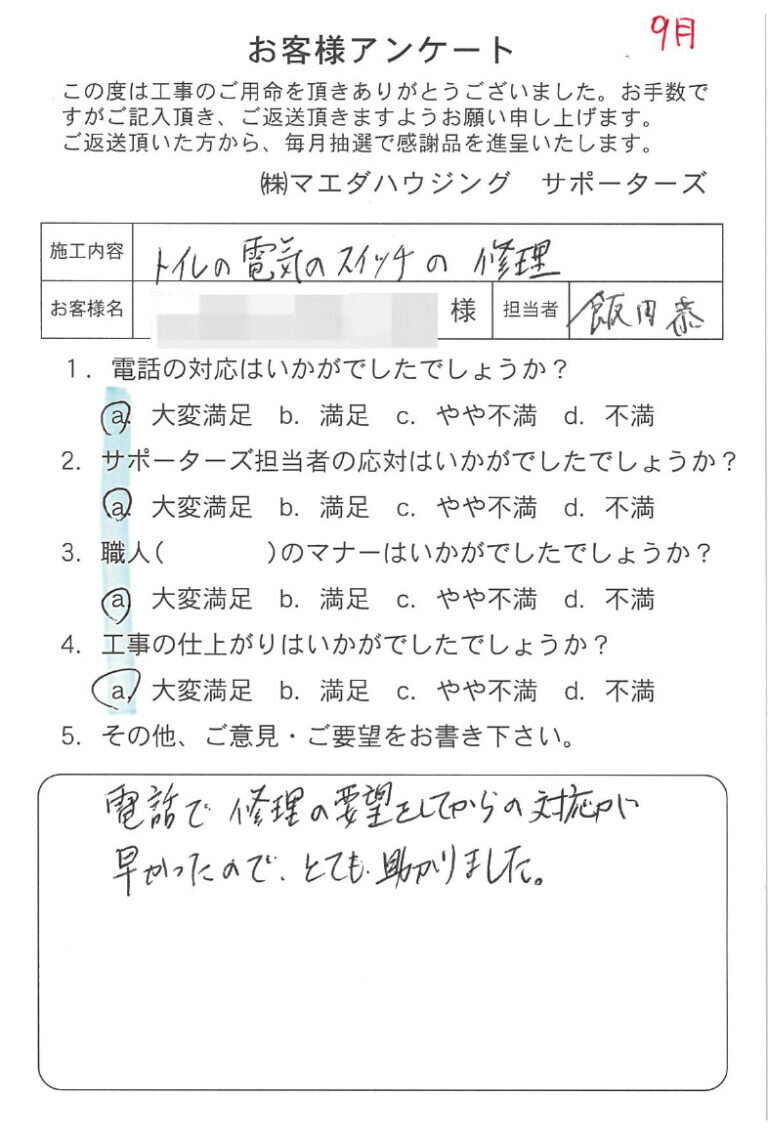 9月
お客様アンケート
この度は工事のご用命を頂きありがとうございました。お手数で
すがご記入頂き、ご返送頂きますようお願い申し上げます。
ご返送頂いた方から、毎月抽選で感謝品を進呈いたします。
㈱マエダハウジング サポーターズ
施工内容 トイレの電気のスイッチの修理
お客様名 様 担当者 飯田恭
1. 電話の対応はいかがでしたでしょうか?
a. 大変満足 b. 満足 c. やや不満 d. 不満
2. サポーターズ担当者の応対はいかがでしたでしょうか?
a. 大変満足 b. 満足 c. やや不満 d. 不満
3. 職人( )のマナーはいかがでしたでしょうか?
a. 大変満足 b. 満足 c. やや不満 d. 不満
4. 工事の仕上がりはいかがでしたでしょうか?
a. 大変満足 b. 満足 c. やや不満 d. 不満
5. その他、ご意見・ご要望をお書き下さい。
電話で修理の要望をしてからの対応が
早かったので、とても助かりました。